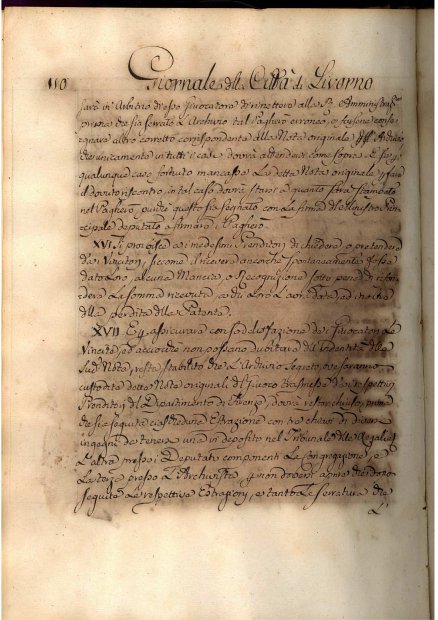 110 Giornale della Città di Livorno
sarà in Arbitrio di esso Giuocatore di rimettere alla Amministraz.ne
prima che sia serrato l'Archivio tal Pagherò erroneo, e farsene conse-
gnare altro corretto corrispondente alla Nota originale
che unicamente in tutti i casi dovrà attendersi come sopra. E se in
qualunque caso fortuito mancasse la detta Nota originale per fare
il dovuto riscontro, in tal caso dovrà starsi a quanto sarà stampato
nel Pagherò, purché questo sia segnato con la firma del Ministro Prin-
cipale deputato a firmare i Pagherò.
XVI. Si proibisce ai medesimi Prenditori di chiedere, o pretendere
dai Vincitori, siccome il ricevere ancorché spontaneamente fosse
dato loro, alcuna Mancia, o Recognizione sotto pena di
la somma ricevuta, ed
della perdita della Patente.
XVII. E per assicurare con soddisfazione dei Giuocatori le
Vincite, ed acciocché non possano dubitare dell'identità delle
sud.e Note, resta stabilito che l'Archivio Segreto, ove saranno
custodite dette Note originali del Giuoco trasmesse dai rispettivi
Prenditori del Dipartimento di Firenze, dovrà restar chiuso, prima
che sia seguita ciascheduna Estrazione con tre chiavi di diversi
ingegni da tenersi una in deposito nel Tribunale delle Regalie,
l'altra presso i Deputati componenti la Congregazione, e
la terza presso l'Archivista, per non doversi aprire che dopo
seguite le respettive Estrazioni, e tanto le serrature che
l'